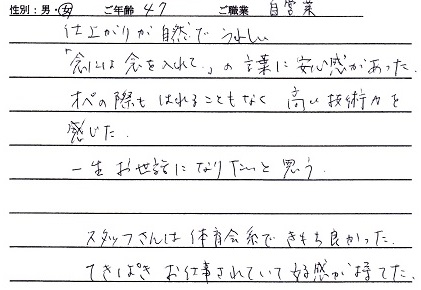 性別：男・女 ご年齢 47 ご職業 自営業
仕上がりが自然でうれしい
「念には念を入れて。」の言葉に安心感があった。
オペの際もはれることもなく 高い技術力を
感じた。
一生お世話になりたいと思う。
スタッフさんは体育会系できもち良かった。
てきぱきお仕事されていて好感が持てた。